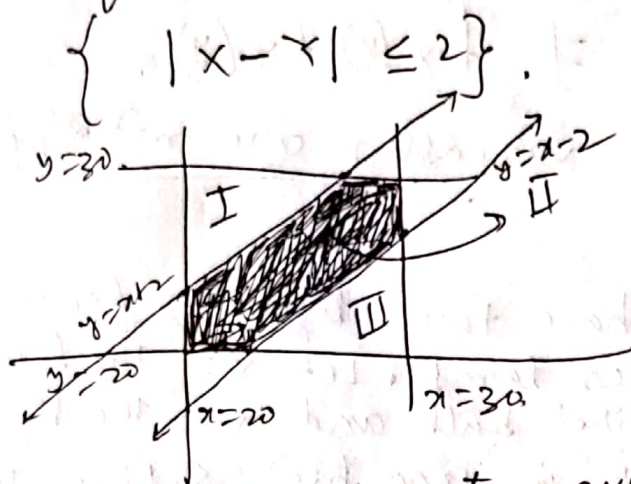 { | X - Y | ≤ 2 } .
y = 30
I
y = x - 2
II
y = x+2
III
y = 20
x = 20
x = 30